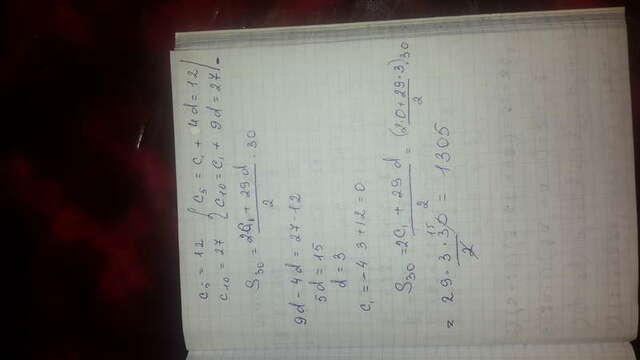 c₅ = 12 { c₅ = c₁ + 4d = 12 |
c₁₀ = 27 { c₁₀ = c₁ + 9d = 27 | -
S₃₀ = (2c₁ + 29·d)/2 · 30
9d - 4d = 27 - 12
5d = 15
d = 3
c₁ = -4·3 + 12 = 0
S₃₀ = (2c₁ + 29 d)/2 = (2·0 + 29·3)·30/2
= 29·3·30/2 15 = 1305